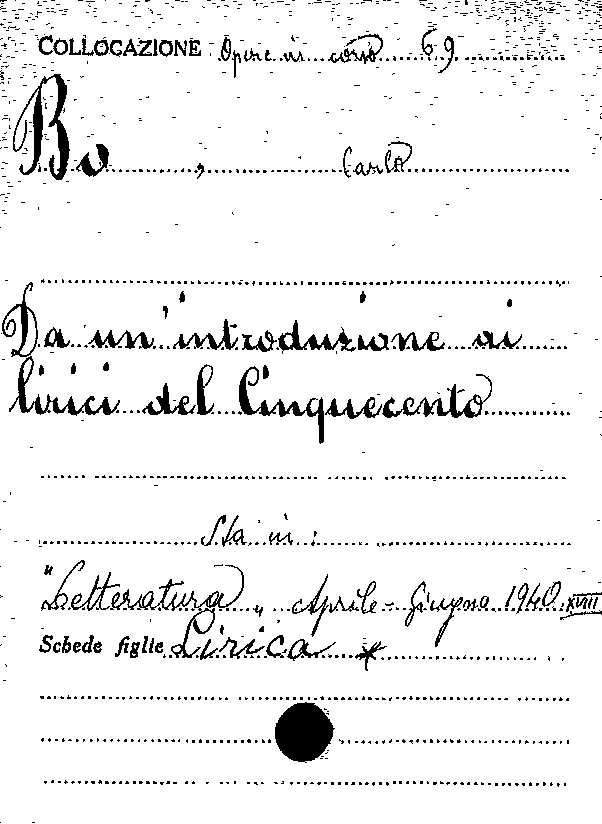 COLLOCAZIONE Opere in corso 69
Bo, Carlo
Da un'introduzione ai
lirici del Cinquecento
Sta in:
"Letteratura" Aprile-Giugno 1940 XVIII
Schede figlie Lirica *